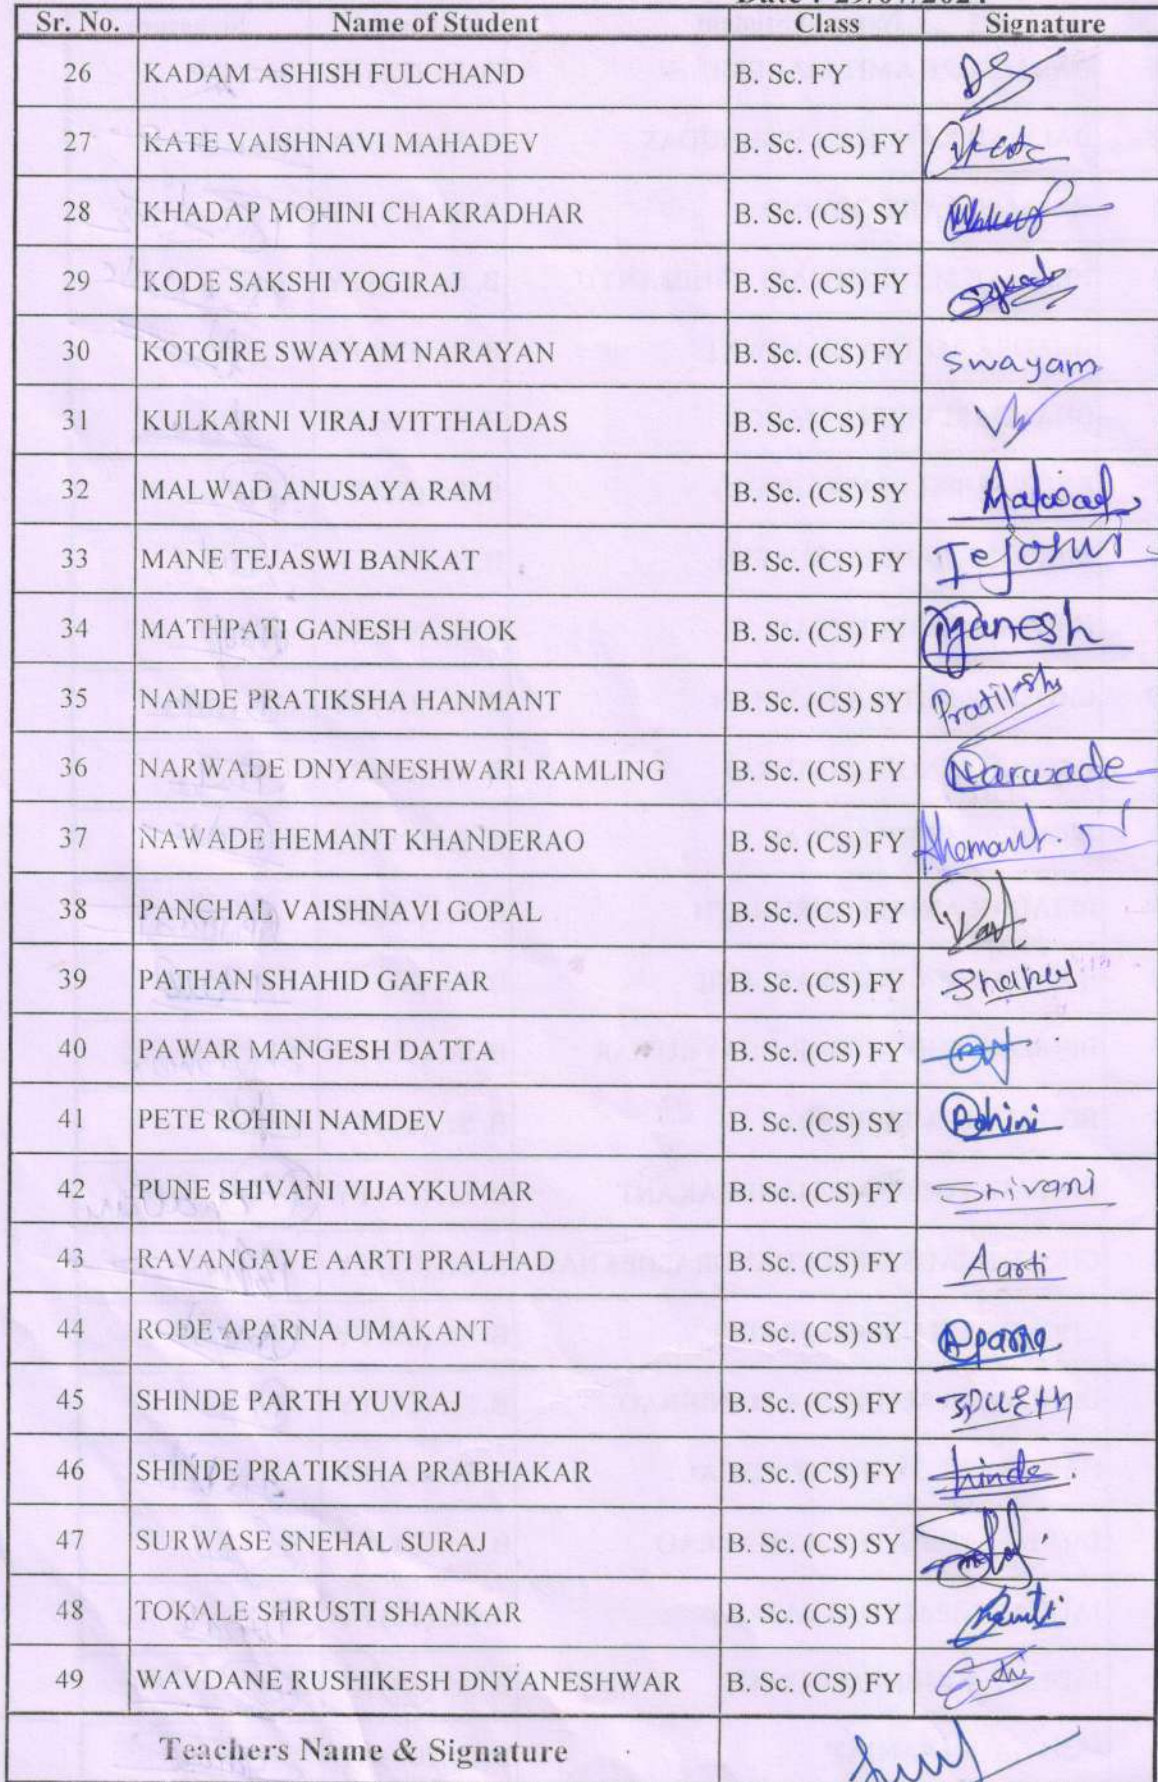 Sr. No. Name of Student Class Signature
26 KADAM ASHISH FULCHAND B. Sc. FY
27 KATE VAISHNAVI MAHADEV B. Sc. (CS) FY
28 KHADAP MOHINI CHAKRADHAR B. Sc. (CS) SY
29 KODE SAKSHI YOGIRAJ B. Sc. (CS) FY
30 KOTGIRE SWAYAM NARAYAN B. Sc. (CS) FY Swayam
31 KULKARNI VIRAJ VITTHALDAS B. Sc. (CS) FY
32 MALWAD ANUSAYA RAM B. Sc. (CS) SY Malwad
33 MANE TEJASWI BANKAT B. Sc. (CS) FY Tejaswi
34 MATHPATI GANESH ASHOK B. Sc. (CS) FY Ganesh
35 NANDE PRATIKSHA HANMANT B. Sc. (CS) SY
36 NARWADE DNYANESHWARI RAMLING B. Sc. (CS) FY Narwade
37 NAWADE HEMANT KHANDERAO B. Sc. (CS) FY
38 PANCHAL VAISHNAVI GOPAL B. Sc. (CS) FY
39 PATHAN SHAHID GAFFAR B. Sc. (CS) FY
40 PAWAR MANGESH DATTA B. Sc. (CS) FY
41 PETE ROHINI NAMDEV B. Sc. (CS) SY Rohini
42 PUNE SHIVANI VIJAYKUMAR B. Sc. (CS) FY Shivani
43 RAVANGAVE AARTI PRALHAD B. Sc. (CS) FY Aarti
44 RODE APARNA UMAKANT B. Sc. (CS) SY Aparna
45 SHINDE PARTH YUVRAJ B. Sc. (CS) FY
46 SHINDE PRATIKSHA PRABHAKAR B. Sc. (CS) FY Shinde
47 SURWASE SNEHAL SURAJ B. Sc. (CS) SY
48 TOKALE SHRUSTI SHANKAR B. Sc. (CS) SY
49 WAVDANE RUSHIKESH DNYANESHWAR B. Sc. (CS) FY
Teachers Name & Signature